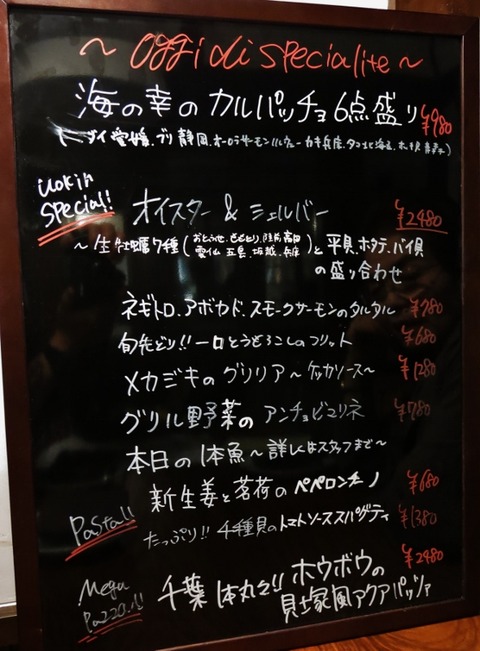 ~ oggi di specialite ~
海の幸の カルパッチョ 6点盛り ¥980
ダイ 愛媛、ブリ 静岡、オーロラサーモン ノルウェー カキ 兵庫、タコ 北海道、ホタテ 青森
uokin special!! オイスター & シェルバー ¥2480
~ 生牡蠣7種 ( 陸前高田 と 平貝、ホタテ、バイ貝
雲仙 五島、坂越、兵庫 ) の盛り合わせ
ネギトロ、アボカド、スモークサーモンのタルタル ¥780
旬先どり!! 一口とうもろこしのフリット ¥680
メカジキのグリリア ~ケッカソース~ ¥1280
グリル野菜の アンチョビマリネ ¥780
本日の 1本魚 ~詳しくはスタッフまで~
新生姜と茗荷の ペペロンチーノ ¥680
Pasta!! たっぷり!! 千種貝のトマトソーススパゲティ ¥1380
Mega Pazzo!! 千葉 1本丸々!! ホウボウの ¥2480
貝塚風アクアパッツァ